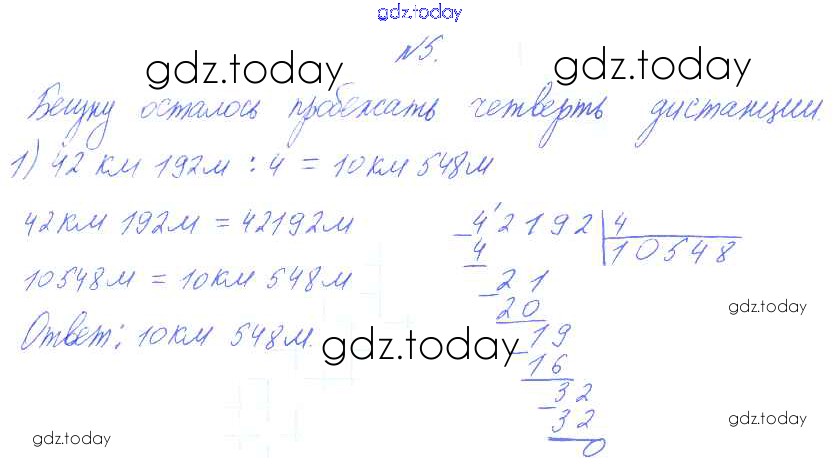 gdz.today
№5.
gdz.today gdz.today
Бегуну осталось пробежать четверть дистанции.
1) 42 км 192м : 4 = 10км 548м
42км 192м = 42192м
10548м = 10км 548м
Ответ: 10км 548м.
42192 | 4
4 10548
21
20
19
16
32
32
0
gdz.today
gdz.today
gdz.today
gdz.today